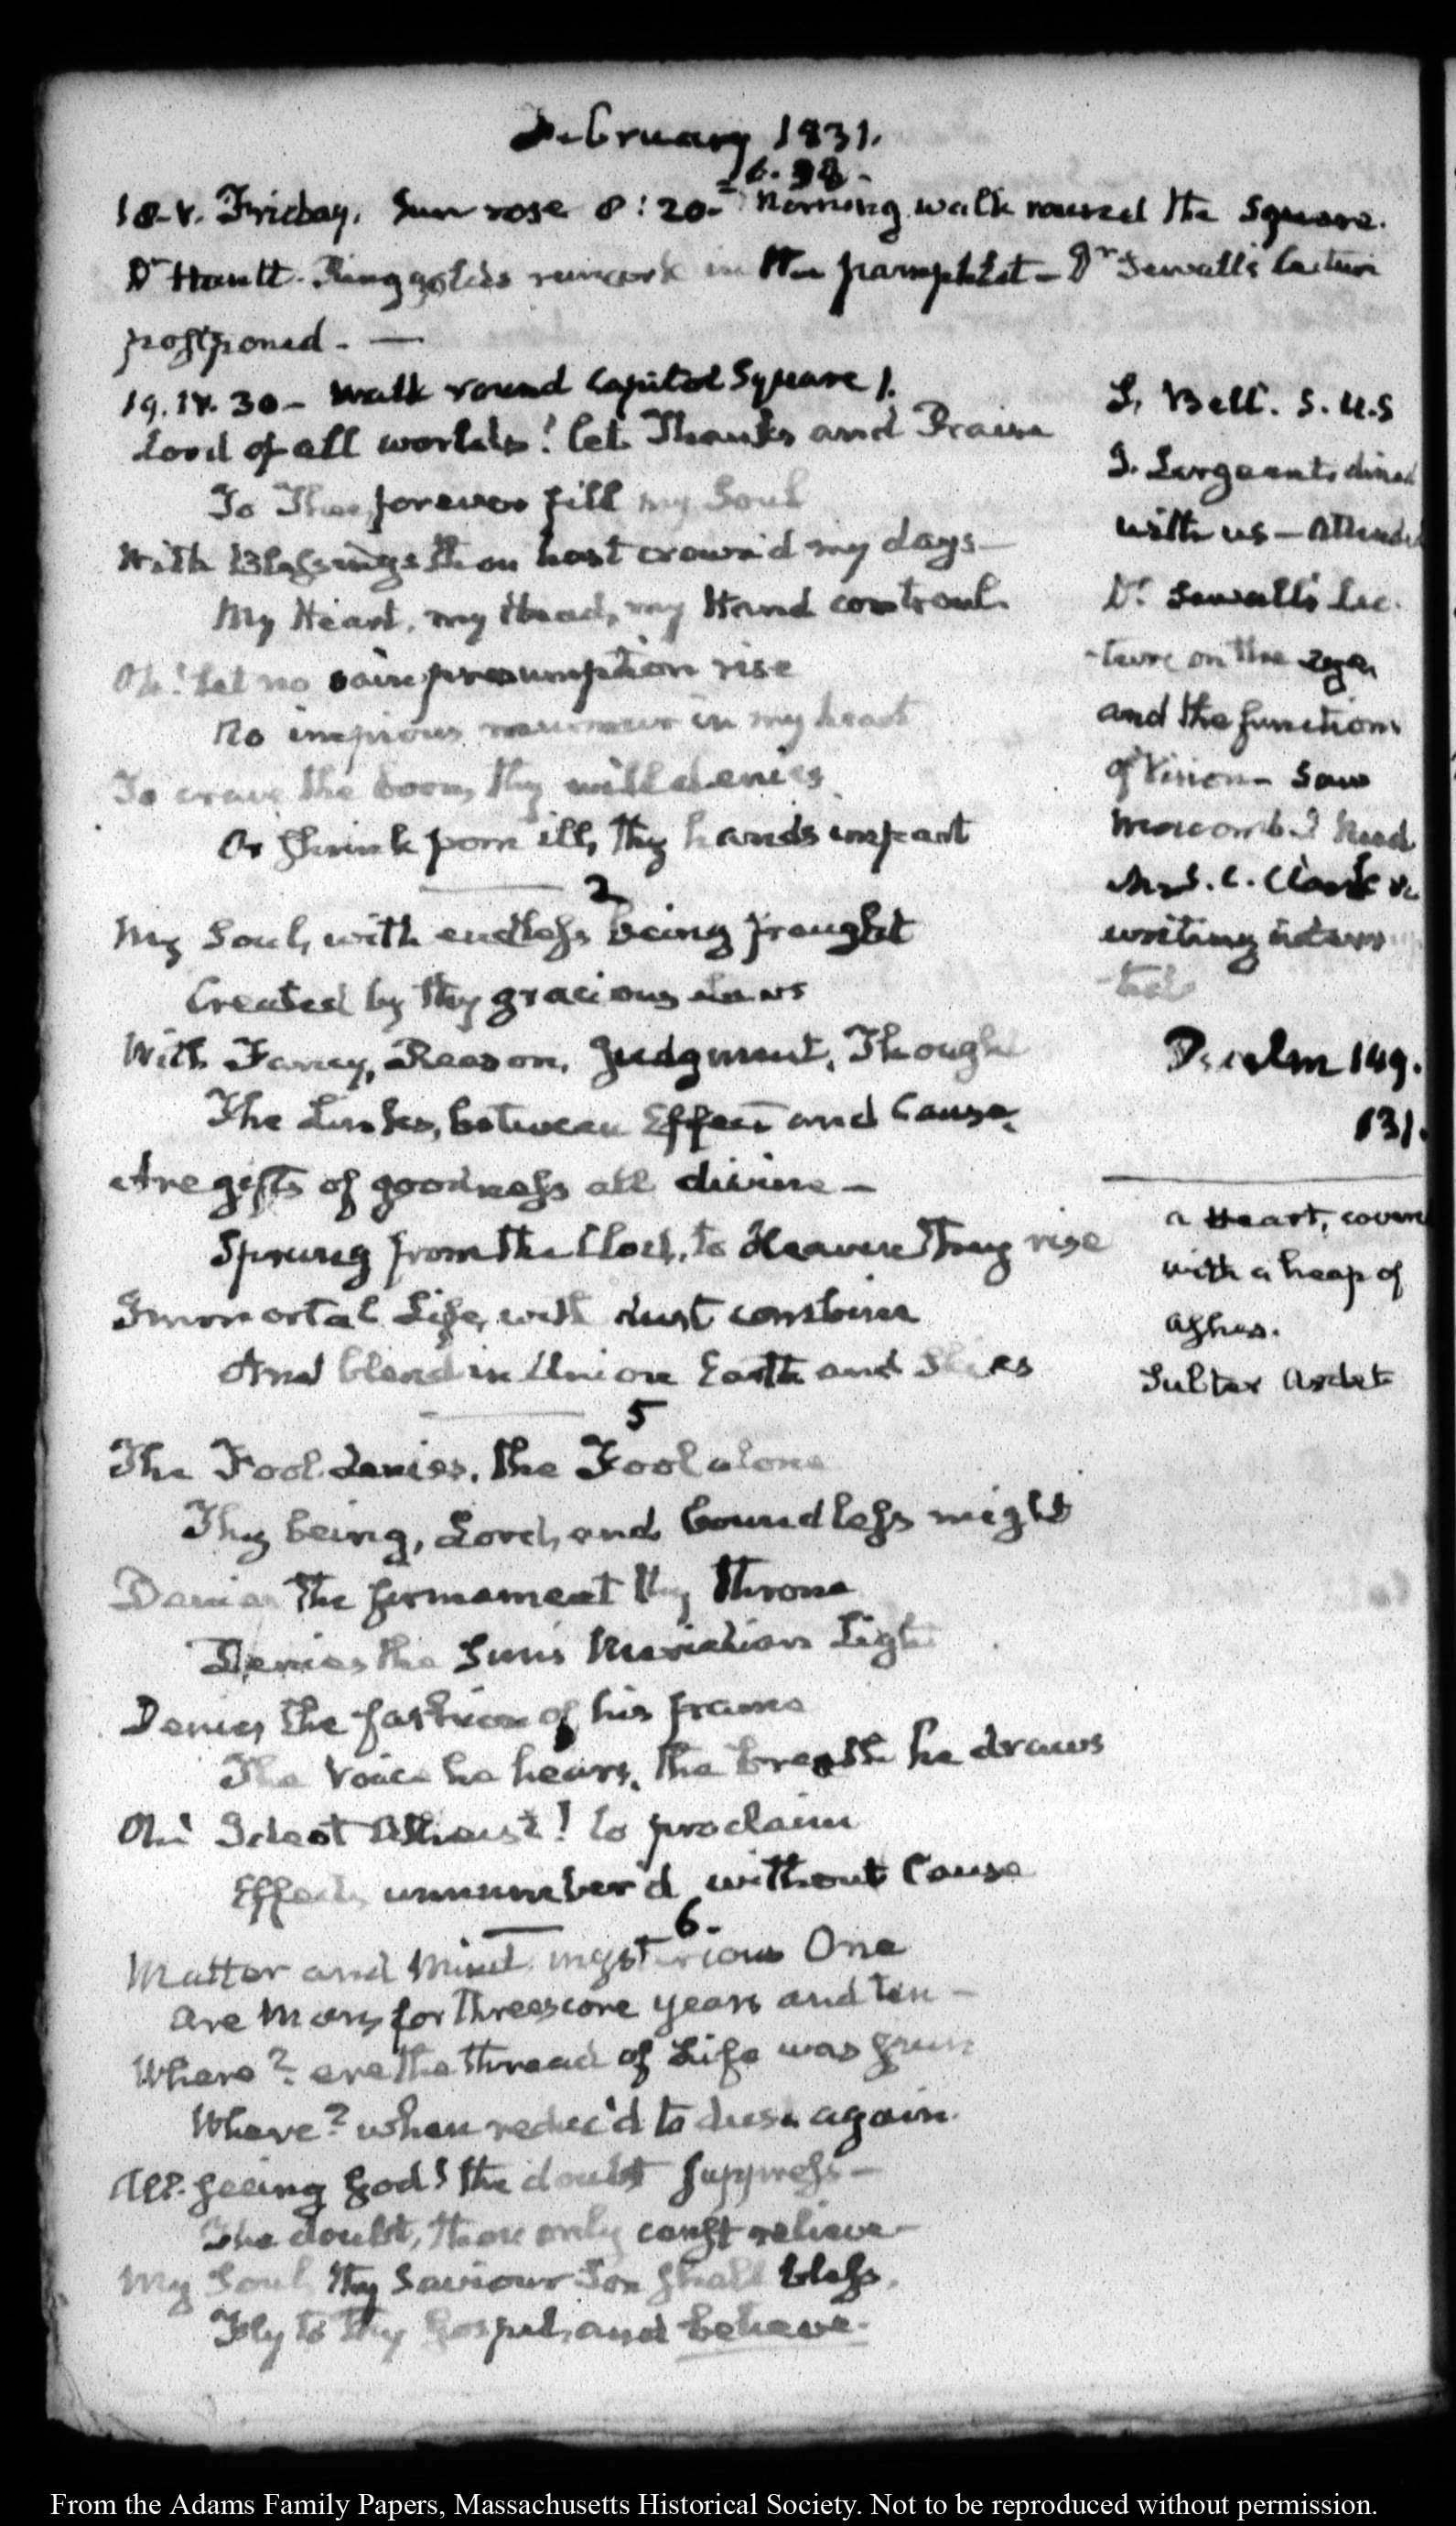 February 1831.
6. 38.-
18. V. Friday. Sun rose 8:20. Morning walk round the Square.
Dr Huntt. Ringgolds remark in the pamphlet - Dr Sewall's lecture
postponed. —
19. IV. 30 - Walk round Capitol Square 1.
Lord of all worlds! let Thanks and Praise
To Thee forever fill my Soul
With Blessings thou hast crown'd my days—
My Heart, my Head, my Hand controul.
Oh! let no vain presumption rise
No impious murmur in my heart
To crave the boon, thy will denies
Or shrink from ill, thy hands impart
2
My Soul, with endless being fraught
Created by thy gracious laws
With Fancy, Reason, Judgment, Thought
The Links, between Effect and Cause,
Are gifts of goodness all divine—
Sprung from the Clod, to Heaven They rise
Immortal Life, with dust combine
And blend in Union Earth and Skies
5
The Fool denies, the Fool alone
Thy being, Lord, and boundless might
Denies the firmament thy throne
Denies the Sun's Meridian Light
Denies the fashion of his frame
The voice he hears, the breath he draws
Oh! Idiot Atheist! to proclaim
Effects unnumber'd without Cause
6.
Matter and Mind, mysterious One
Are Man, for threescore years and ten—
Where? ere the thread of Life was spun
Where? when reduc'd to dust again.
All-seeing God! the doubt suppress—
The doubt, thou only canst relieve—
My Soul, thy Saviour Son shall bless,
Fly to thy Gospel, and believe.
S. Bell. S.U.S
J. Sergeant dined
with us—Attended
Dr. Sewall's lec-
-ture on the eye,
and the functions
of Vision— Saw
Mrs. C. Clark
writing
Psalm 149.
131.
a Heart, cover
with a heap of
ashes.
Ardet
From the Adams Family Papers, Massachusetts Historical Society. Not to be reproduced without permission.